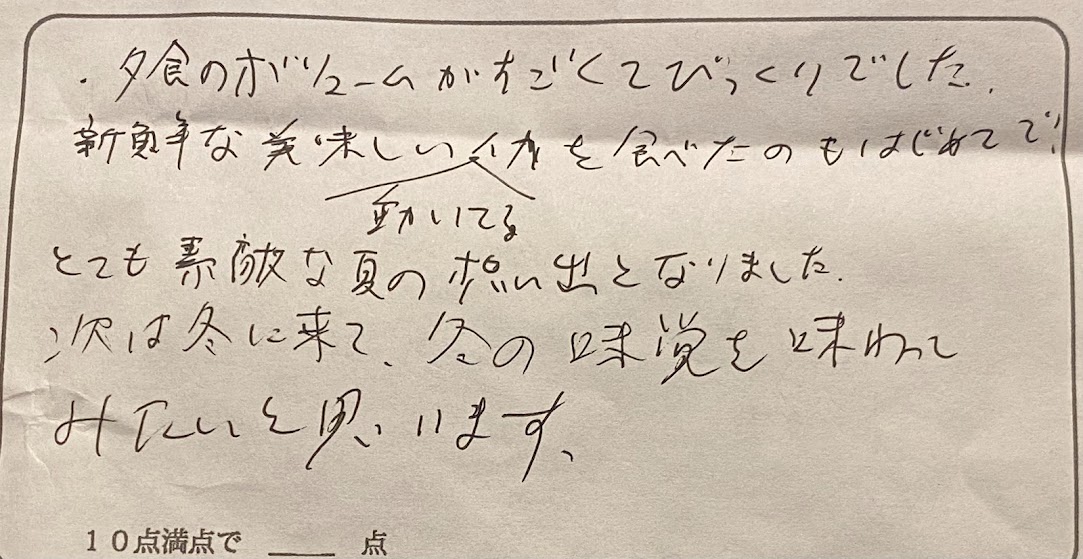 ・夕食のボリュームがすごくてびっくりでした.
新鮮な美味しいイカを食べたのもはじめてで!
動いてる
とても素敵な夏の想い出となりました.
次は冬に来て、冬の味覚を味わって
みたいと思います、
10点満点で ____ 点